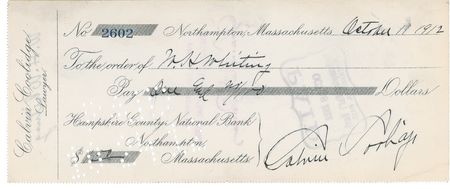 Calvin Coolidge
Lawyer
No 2602 Northampton, Massachusetts, October 11 1912
To the order of W. H. Whiting
Pay Dollars
Hampshire County National Bank
Northampton,
Massachusetts
$
Calvin Coolidge